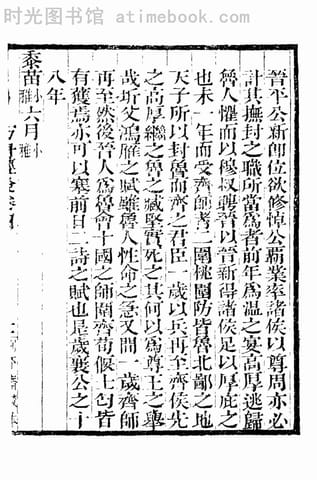 时光图书馆 - atimebook.com
晉平公新卽位欲修悼公霸業率諸侯以尊周亦必
計其撫封之職所當爲者前年爲溫之宴高厚逃歸
魯人懼而以穆叔聘晉以晉新得諸侯足以厚庇之
也未一年而受齊師者二圍桃圍防皆魯北鄙之地
天子所以封魯而齊之君臣一歲以兵再至齊侯先
之高厚繼之魯之臧堅實死之其何以爲尊王之舉
哉圻父鴻雁之賦雖魯人性命之急又間一歲齊師
再至然後晉人爲魯會十國之師圍齊荀偃士匄皆
有獲焉亦可以塞前日二詩之賦也是歲襄公之十
八年
黍苗小雅六月小雅
时光图书馆 - atimebook.com